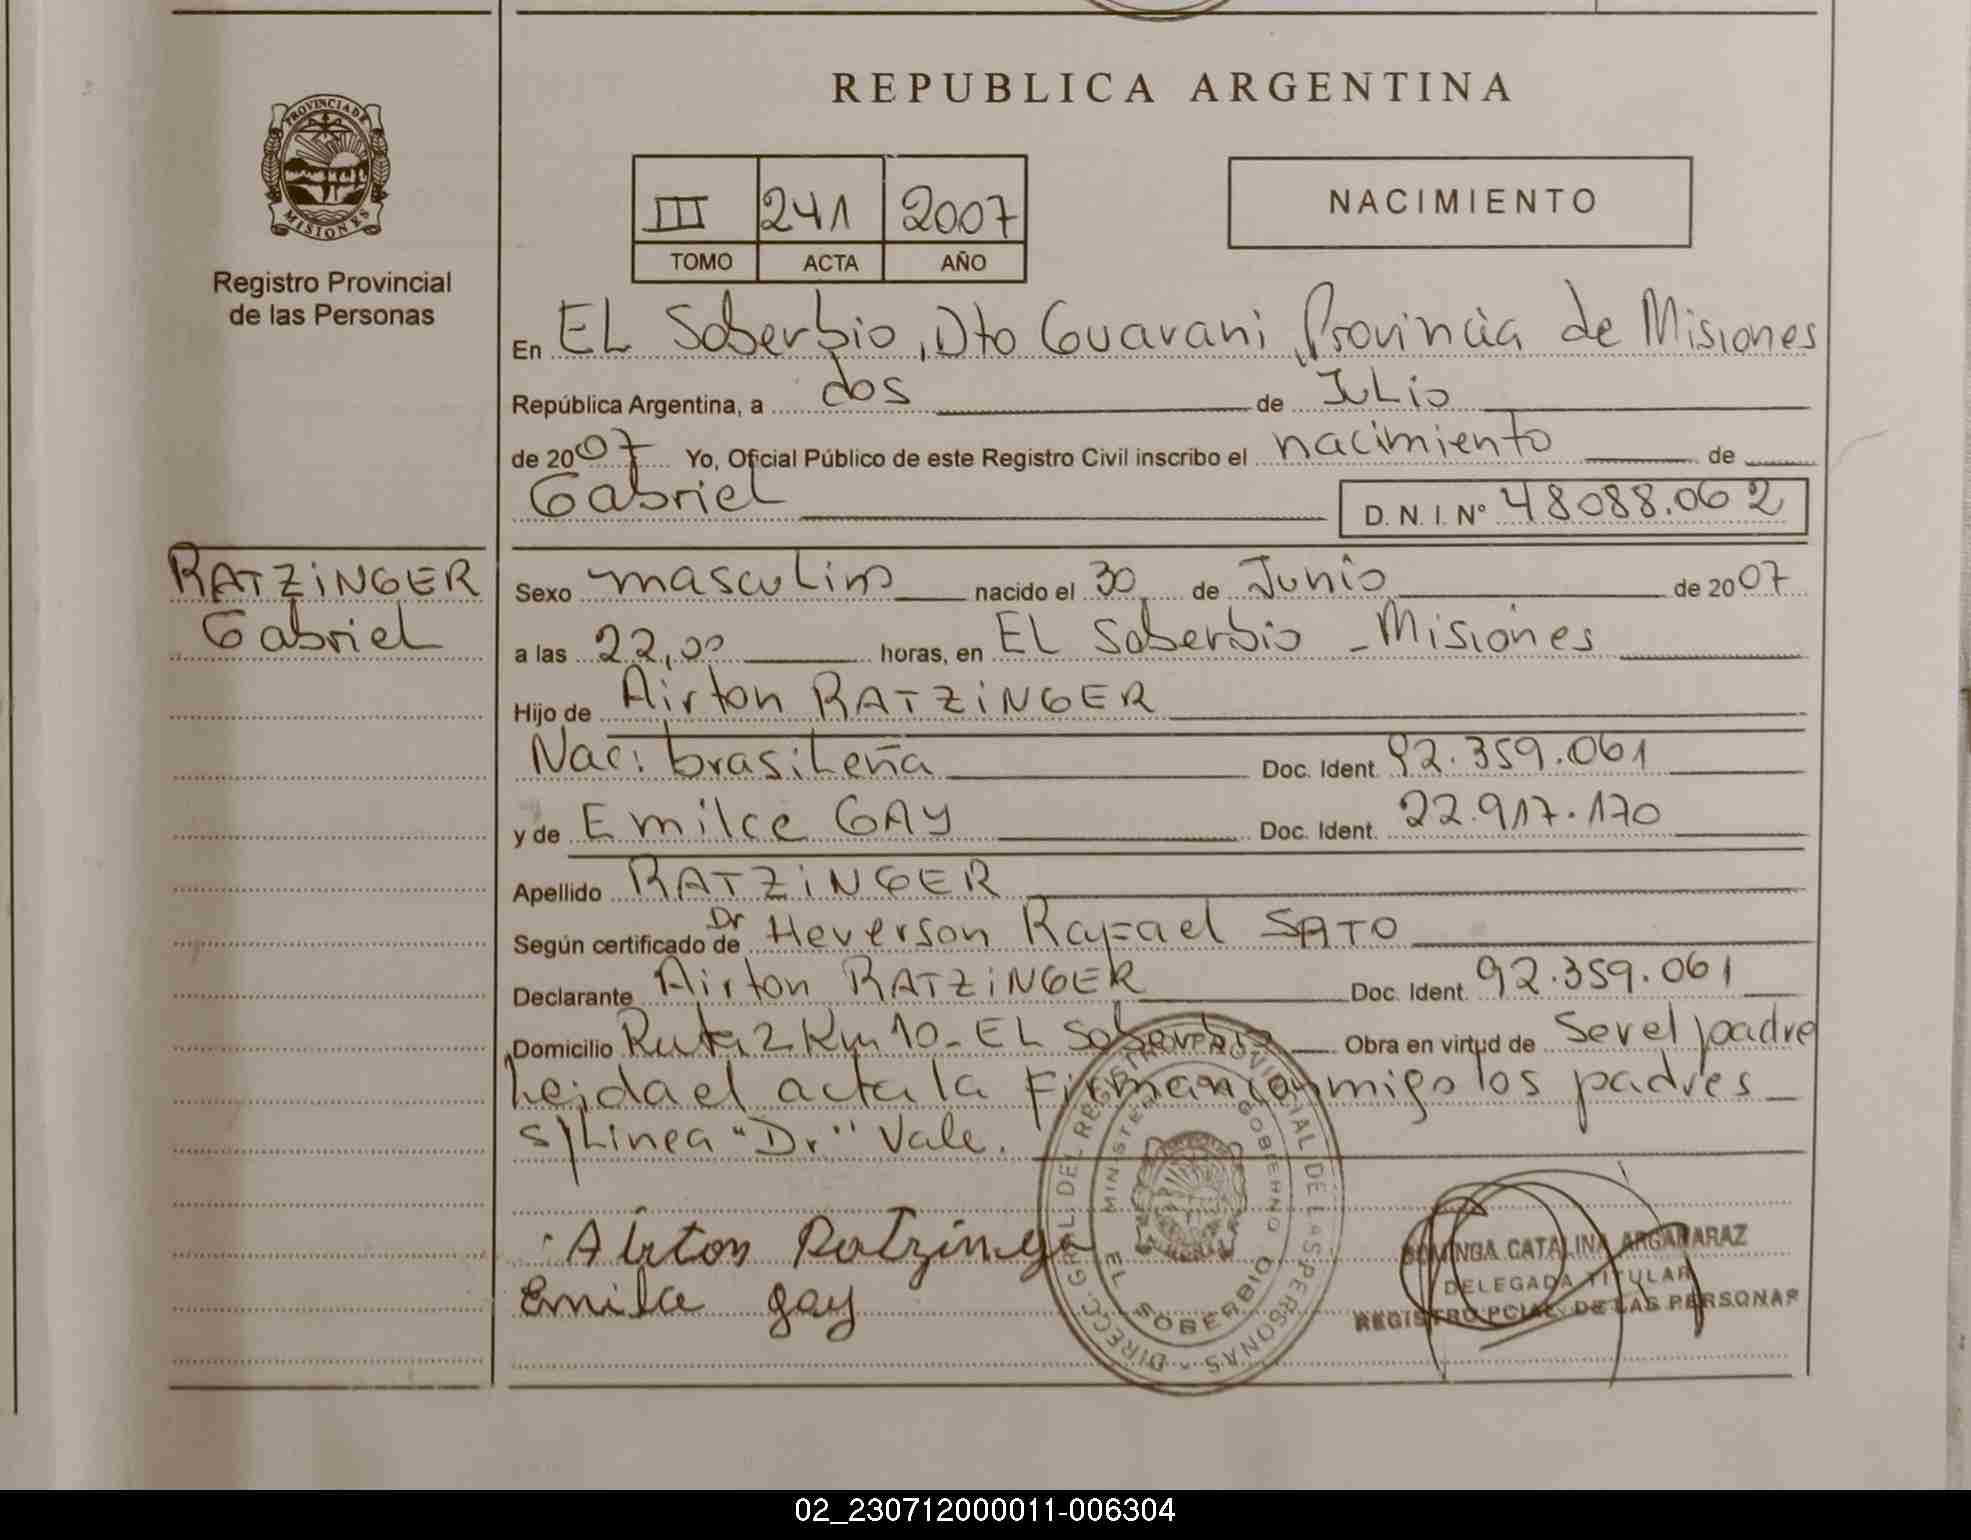 REPUBLICA ARGENTINA
PROVINCIA DE MISIONES
Registro Provincial
de las Personas
III 241 2007
TOMO ACTA AÑO
NACIMIENTO
En EL Soberbio, Dto Guarani, Provincia de Misiones
República Argentina, a dos de Julio
de 2007 Yo, Oficial Público de este Registro Civil inscribo el nacimiento de
Gabriel D. N. I. Nº 48088.062
RATZINGER
Gabriel
Sexo masculino nacido el 30 de Junio de 2007
a las 22,00 horas, en EL Soberbio - Misiones
Hijo de Airton RATZINGER
Nac: brasileña Doc. Ident. 92.359.061
y de Emilce GAY Doc. Ident. 22.917.170
Apellido RATZINGER
Según certificado de Dr Heverson Rafael SATO
Declarante Airton RATZINGER Doc. Ident. 92.359.061
Domicilio Ruta 2 Km 10 - EL Soberbio Obra en virtud de Ser el padre
Leida el acta la Firman conmigo los padres
s/Linea "Dr" Vale.
Airton Ratzinger
Emilce gay
DIRECC. GRAL. DEL REGISTRO PROVINCIAL DE LAS PERSONAS
MINISTERIO GOBIERNO
EL SOBERBIO
DOMINGA CATALINA ARGAÑARAZ
DELEGADA TITULAR
REGISTRO PCIAL. DE LAS PERSONAS
02_230712000011-006304